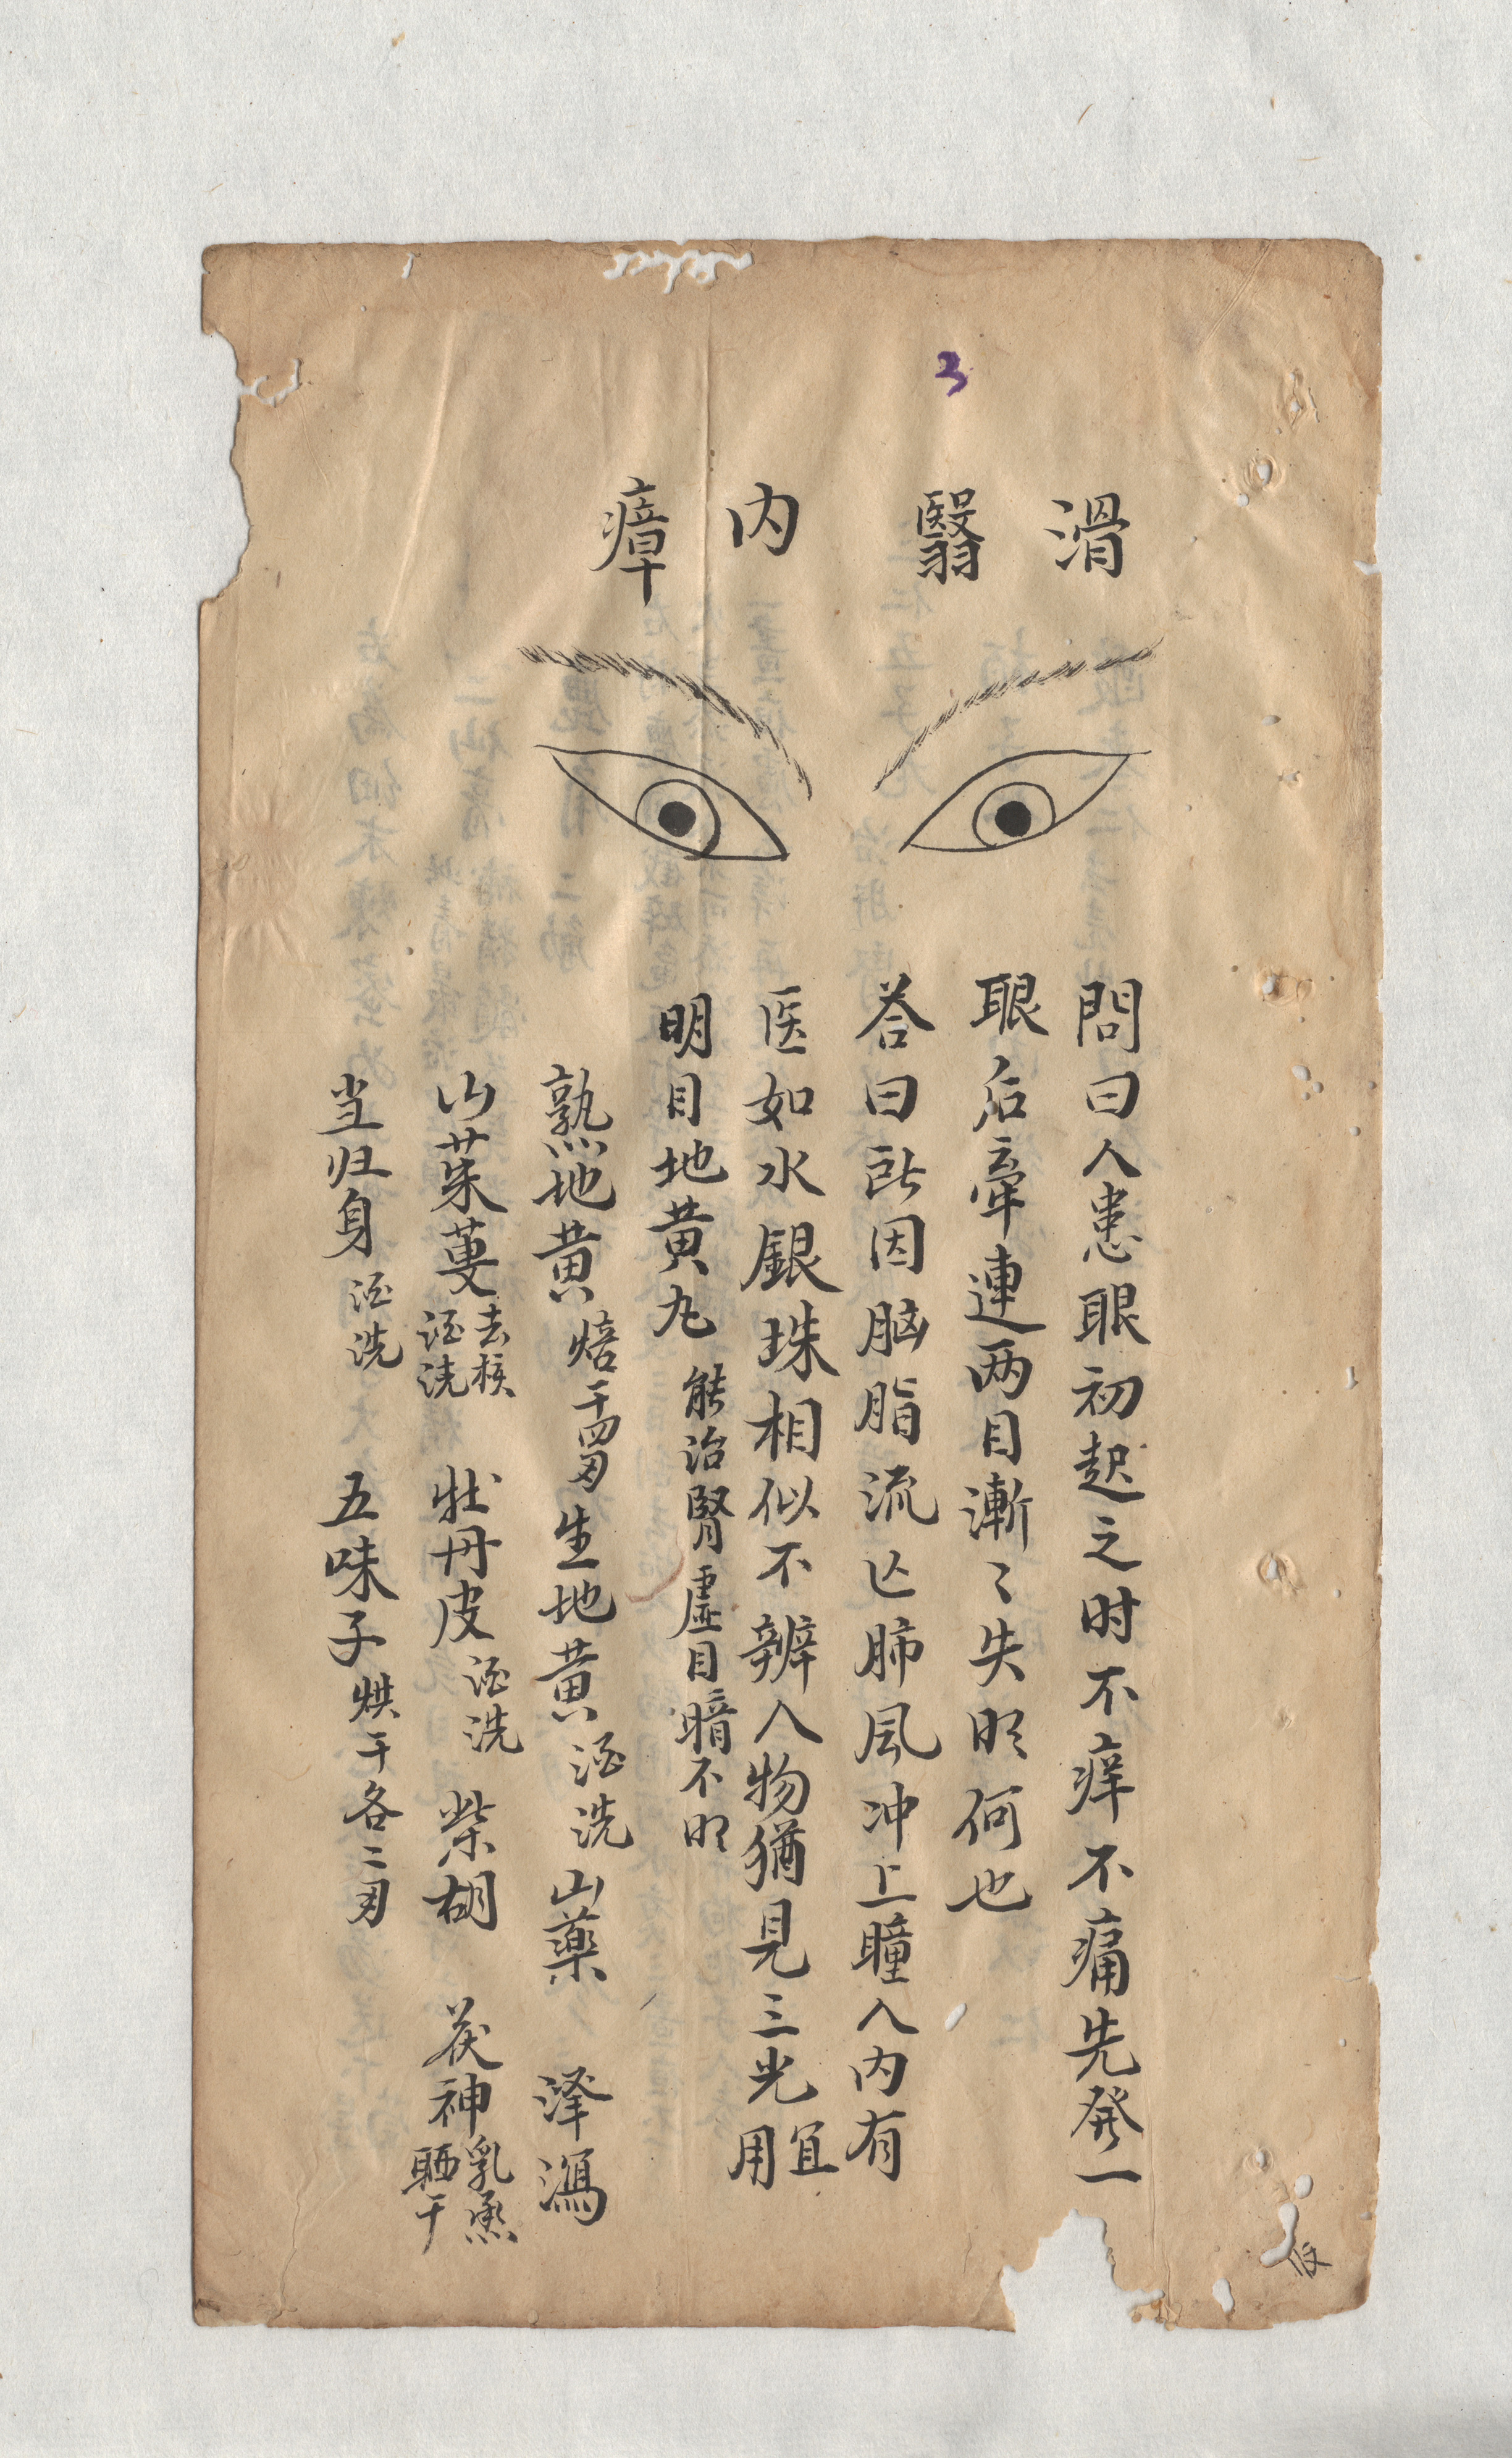 3
滑翳内瘴
問曰人患眼初起之时不痒不痛先発一
眼后牽連两目漸〻失明何也
答曰此因脑脂流亡肺風冲上瞳人内有
医如水銀珠相似不辨人物猶見三光宜用
明目地黄丸 能治腎虚目暗不明
熟地黄 焙干四两 生地黄 酒洗 山藥 泽瀉
山茱萸 去核酒洗 牡丹皮 酒洗 柴胡 茯神 乳蒸晒干
当归身 酒洗 五味子 烘干各二两